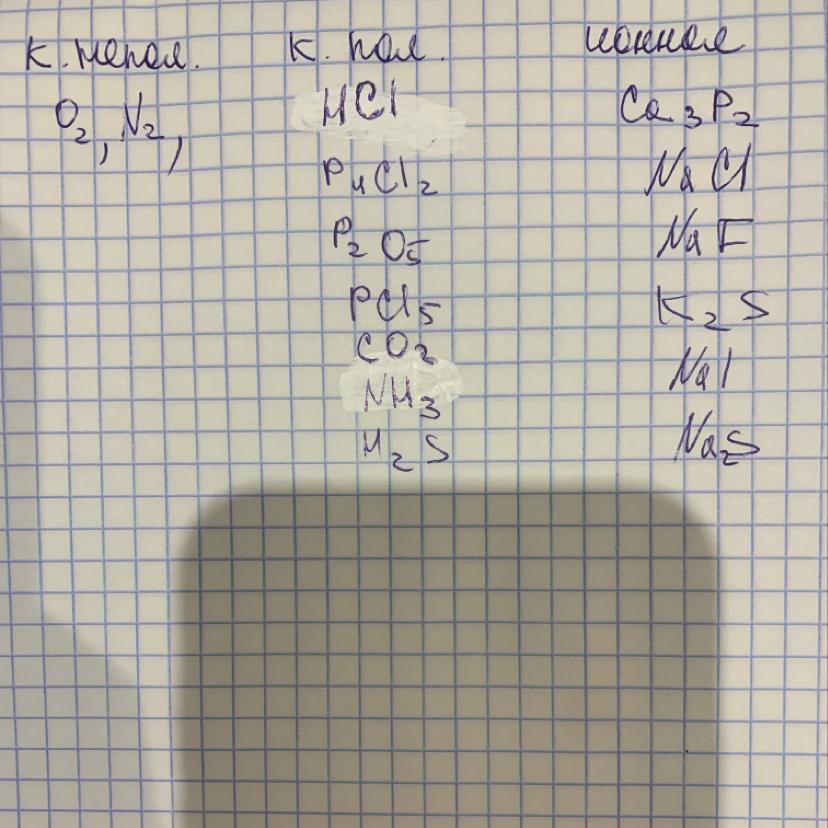 к. непол. к. пол. ионная
O₂, N₂, HCl Ca₃P₂
P₄Cl₂ NaCl
P₂O₅ NaF
PCl₅ K₂S
CO₂
NH₃ NaI
H₂S Na₂S